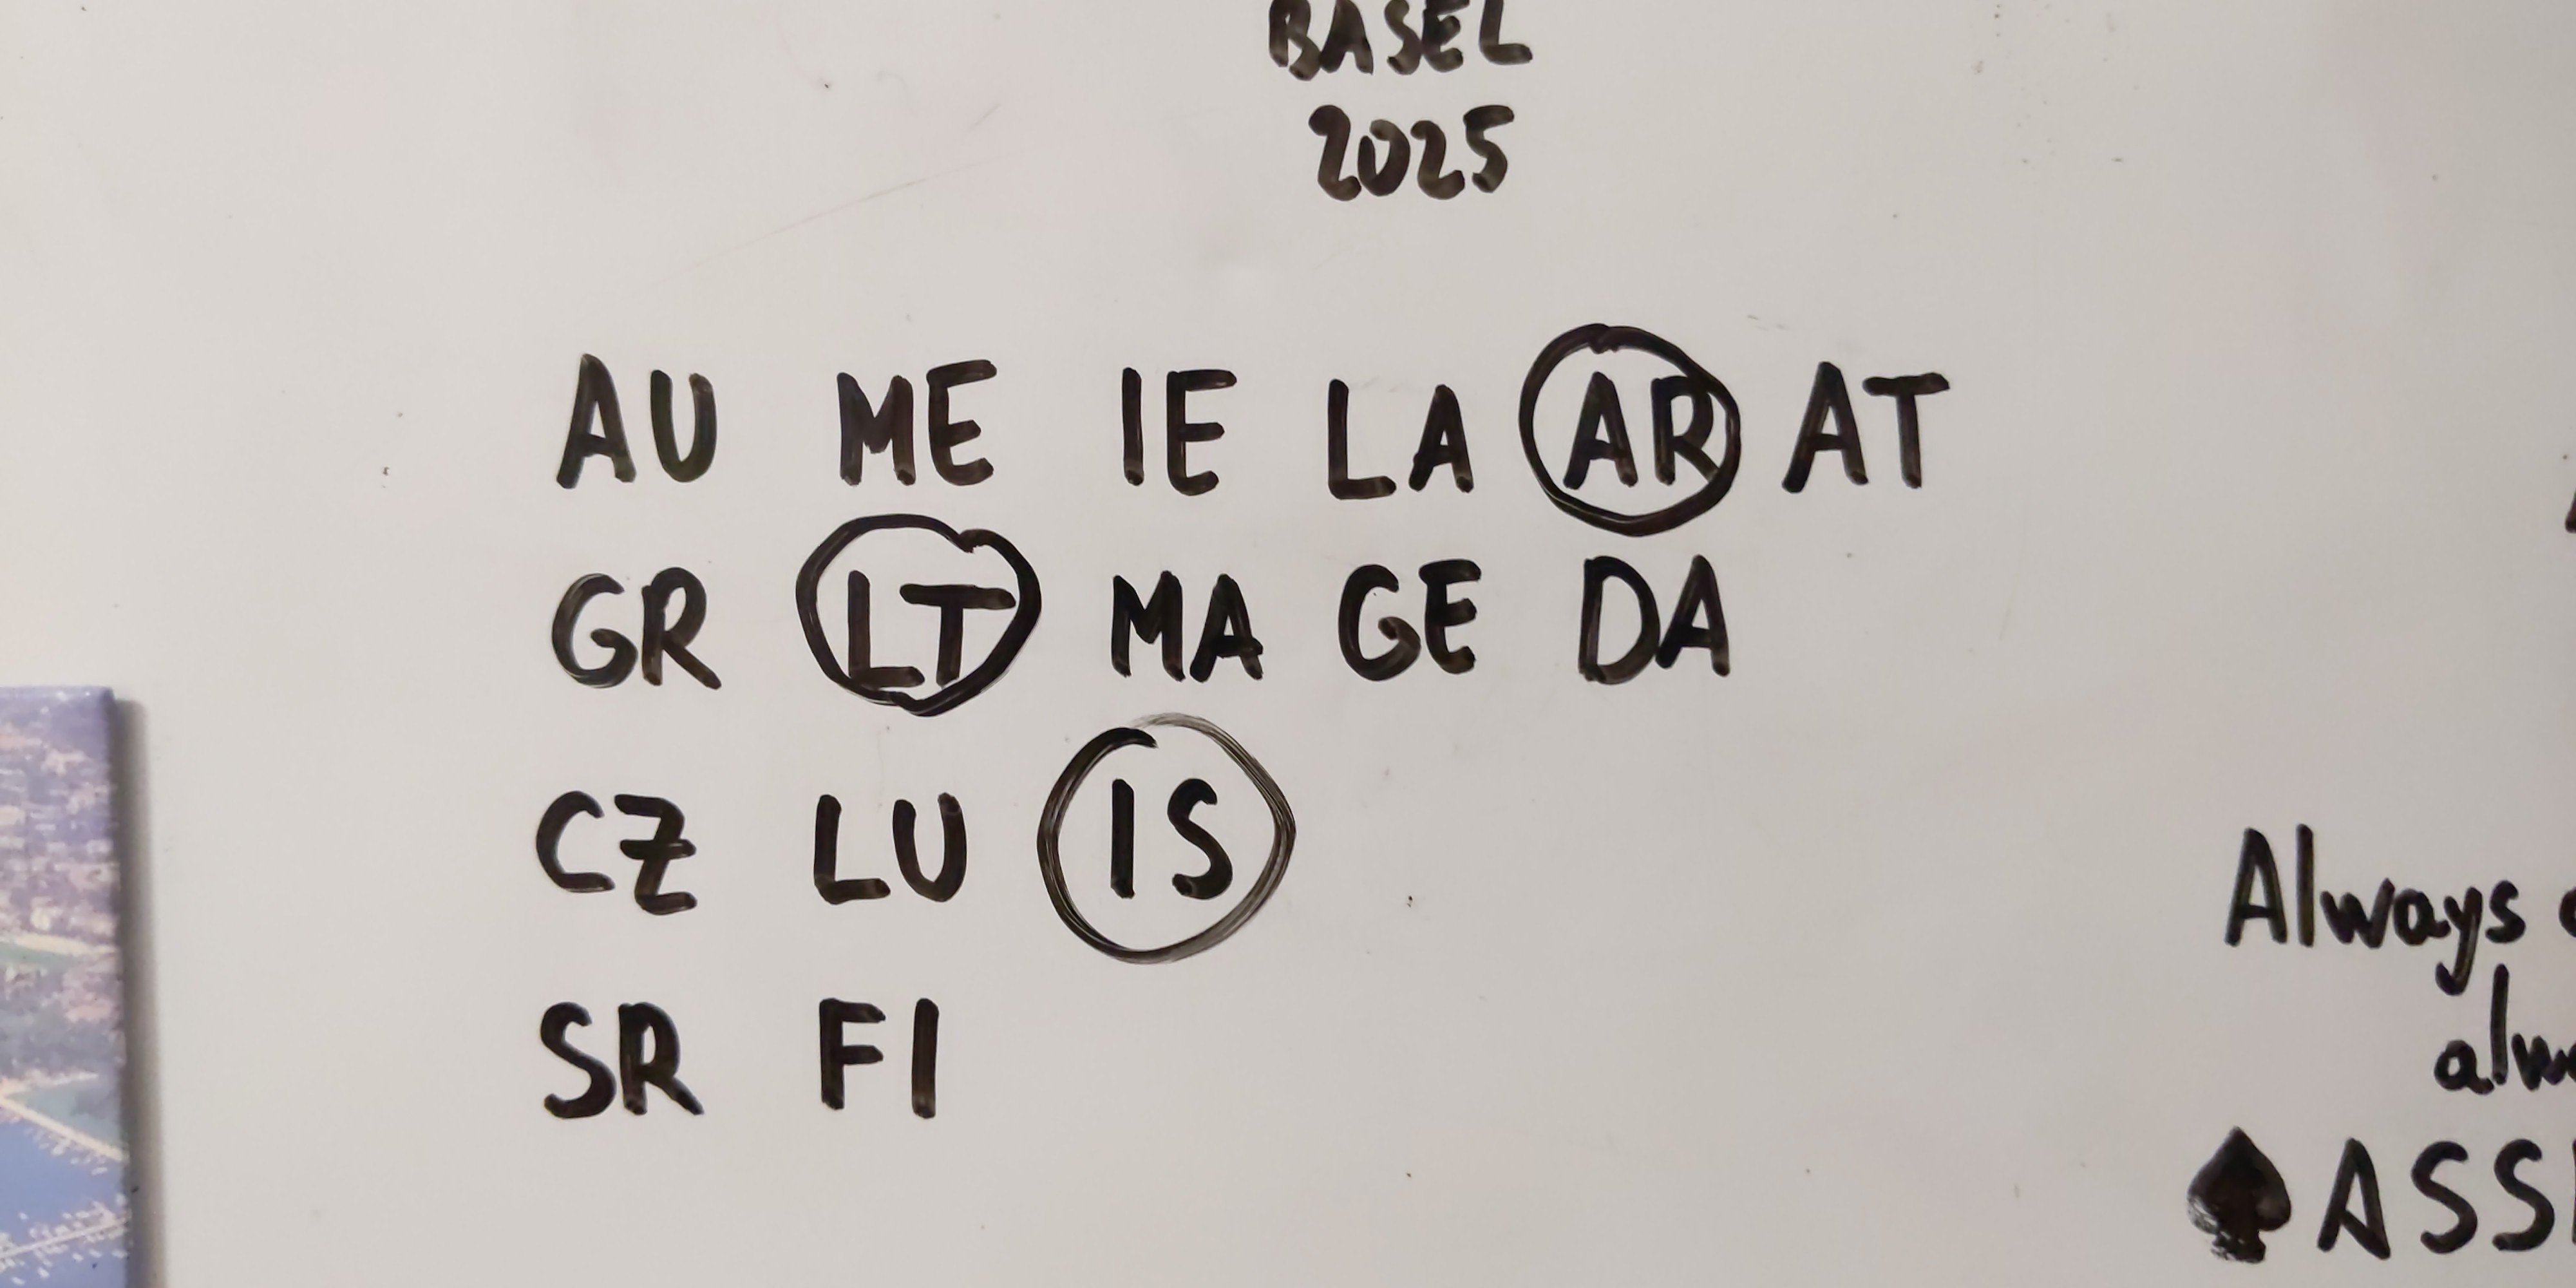 BASEL
2025
AU ME IE LA AR AT
GR LT MA GE DA
CZ LU IS
SR FI
Always